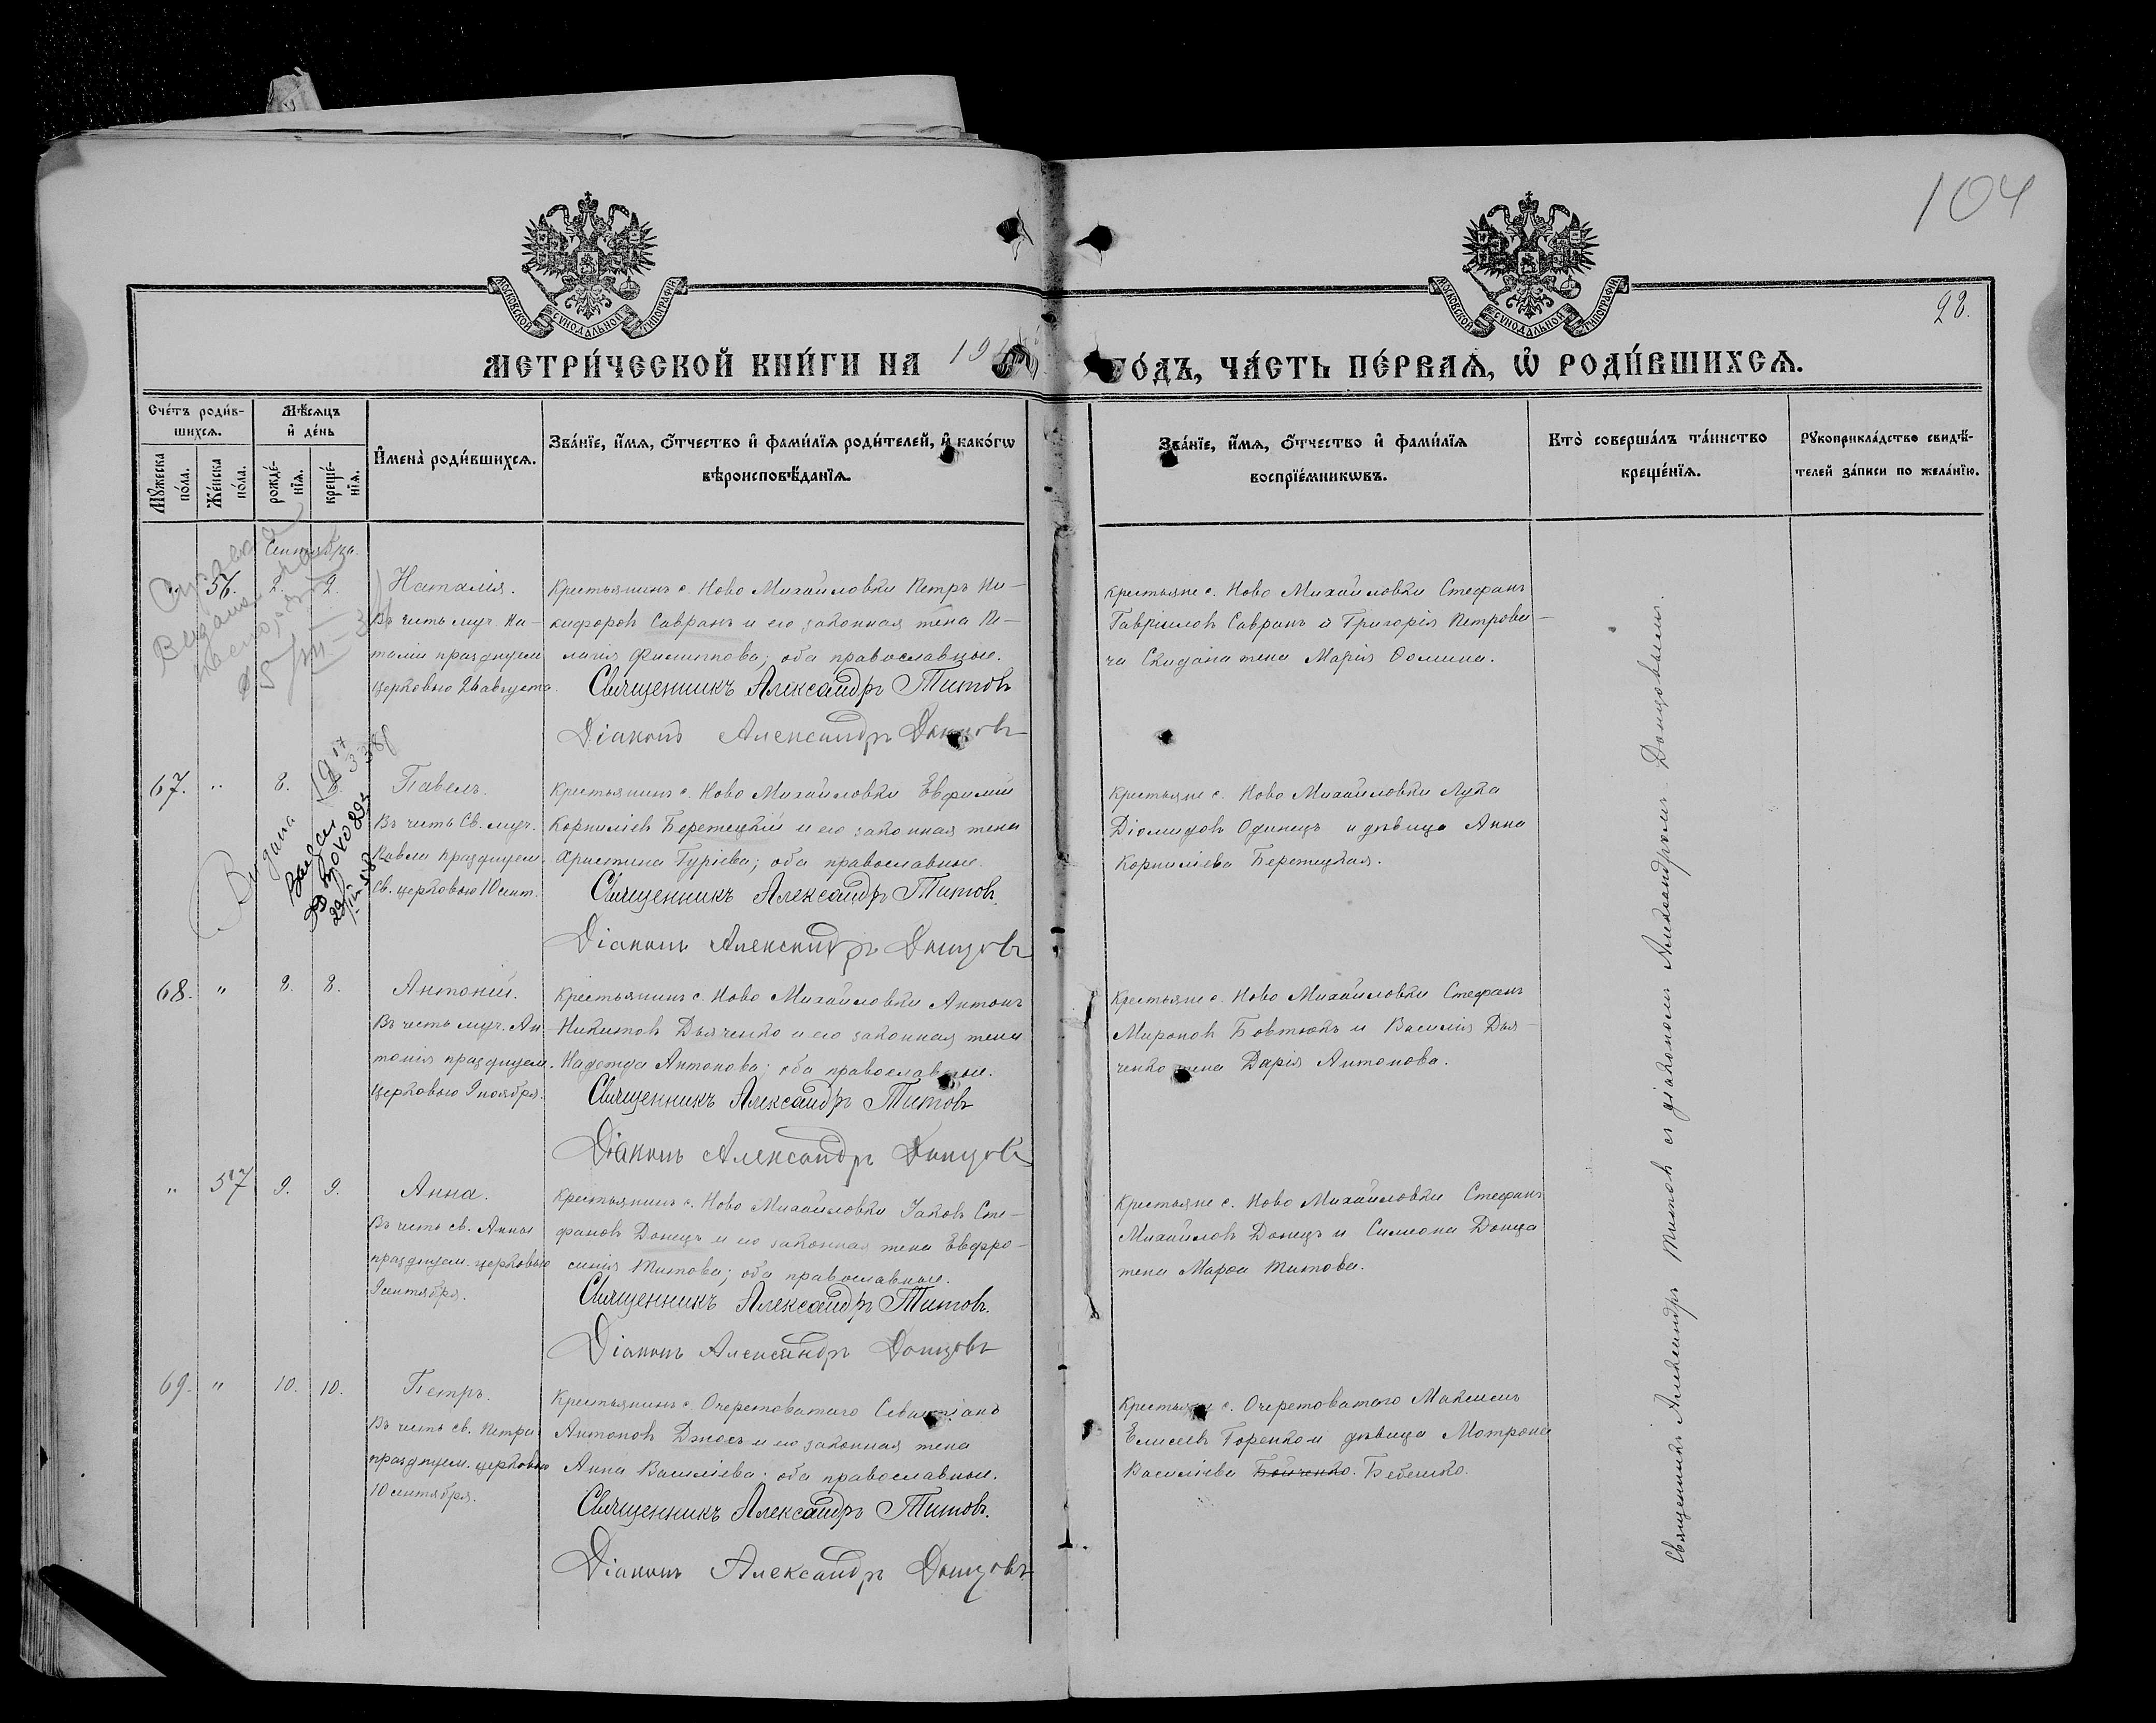 104
МОСКОВСКОЙ СУНОДАЛЬНОЙ ТИПОГРАФІИ
МОСКОВСКОЙ СУНОДАЛЬНОЙ ТИПОГРАФІИ
28.
МЕТРИ́ЧЕСКОЙ КНИ́ГИ НА 19
ГО́ДЪ, ЧА́СТЬ ПЕ́РВАѦ, Ѡ҆ РОДИ́ВШИХСѦ.
Сче́тъ роди́в-
шихсѧ.
Мꙋ́жеска по́ла.
Же́нска по́ла.
Мѣ́сѧцъ
и҆ де́нь
рожде́-
нїѧ.
креще́-
нїѧ.
И҆мена̀ роди́вшихсѧ.
Зва́нїе, и҆́мѧ, ѻ҆́тчество и҆ фами́лїѧ роди́телей, и҆ како́гѡ
вѣроисповѣ́данїѧ.
Зва́нїе, и҆́мѧ, ѻ҆́тчество и҆ фами́лїѧ
воспрїе́мникѡвъ.
Кто̀ соверша́лъ та́инство
креще́нїѧ.
Рꙋкоприкла́дство свидѣ́-
телей за́писи по жела́нїю.
Сентября.
„ 56. 2. 2.
Наталія.
Въ честь муч. На-
таліи празднуем.
церковью 26 августа.
Крестьянинъ с. Ново Михайловки Петръ Ни-
кифоровъ Савранъ и его законная жена Пе-
лагія Филиппова; оба православные.
Священникъ Александръ Титовъ
Діаконъ Александръ Донцовъ
Крестьяне с. Ново Михайловки Стефанъ
Гавріиловъ Савранъ и Григорія Петрови-
ча Скидана жена Марія Ѳомина.
67. „ 8.
Павелъ.
Въ честь Св. муч.
Павла празднуем.
св. церковью 10 сент.
Видана
Крестьянинъ с. Ново Михайловки Евфимій
Корниліевъ Бережецкій и его законная жена
Христина Гуріева; оба православные.
Священникъ Александръ Титовъ.
Діаконъ Александръ Донцовъ
Крестьяне с. Ново Михайловки Лука
Діомидовъ Одинецъ и дѣвица Анна
Корниліева Бережецкая.
68. „ 8. 8.
Антоній.
Въ честь муч. Ан-
тонія празднуем.
церковью 9 ноября.
Крестьянинъ с. Ново Михайловки Антонъ
Никитовъ Дьяченко и его законная жена
Надежда Антонова; оба православные.
Священникъ Александръ Титовъ
Діаконъ Александръ Донцовъ
Крестьяне с. Ново Михайловки Стефанъ
Мироновъ Бовтюкъ и Василія Дья-
ченко жена Дарія Антонова.
„ 57 9. 9.
Анна.
Въ честь св. Анны
празднуем. церковью
9 сентября.
Крестьянинъ с. Ново Михайловки Іаковъ Сте-
фановъ Донецъ и его законная жена Евфро-
синія Титова; оба православные.
Священникъ Александръ Титовъ.
Діаконъ Александръ Донцовъ
Крестьяне с. Ново Михайловки Стефанъ
Михайловъ Донецъ и Симеона Донца
жена Марѳа Титова.
69. „ 10. 10.
Петръ.
Въ честь св. Петра
празднуем. церковью
10 сентября.
Крестьянинъ с. Очеретоватаго Севастіанъ
Антоновъ Джосъ и его законная жена
Анна Василіева; оба православные.
Священникъ Александръ Титовъ.
Діаконъ Александръ Донцовъ
Крестьяне с. Очеретоватаго Максимъ
Елисеевъ Горенко и дѣвица Матрона
Василіева Бойченко. Бебешко.
Священникъ Александръ Титовъ съ діакономъ Александромъ Донцовымъ.